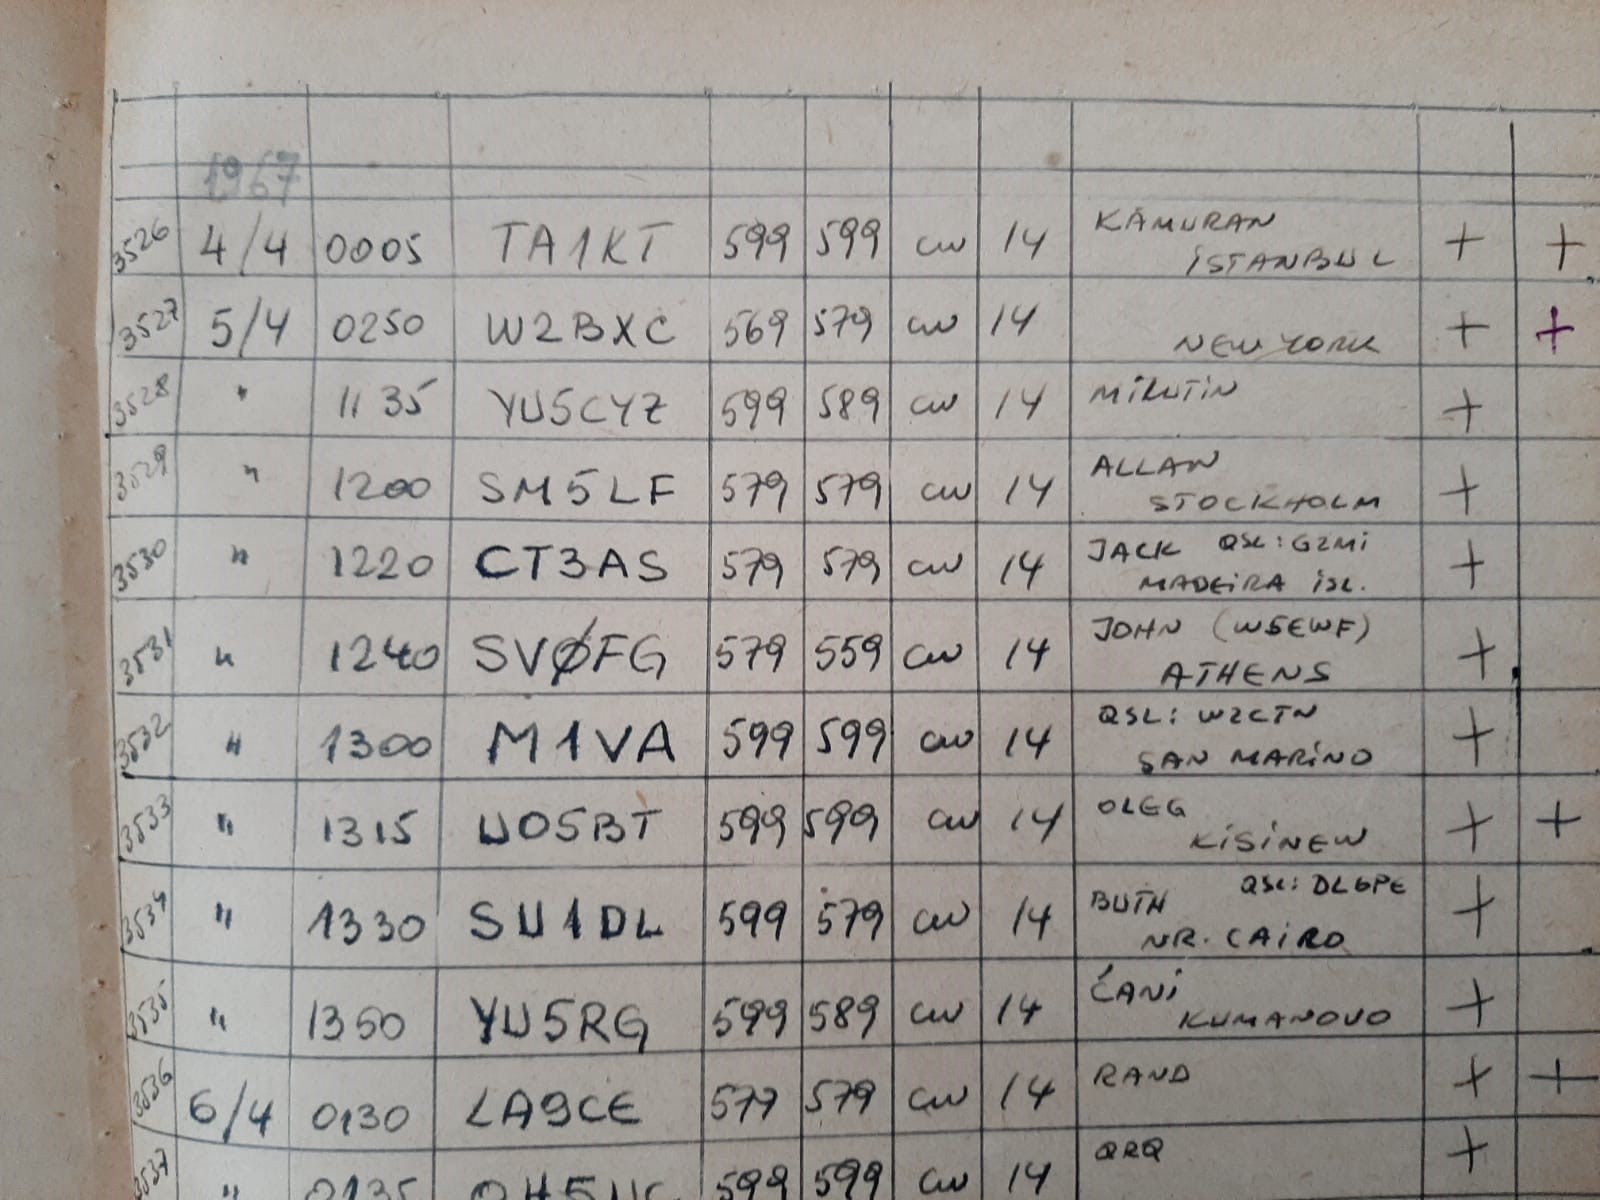 1967
3526 4/4 0005 TA1KT 599 599 cw 14 KAMURAN + +
İSTANBUL
3527 5/4 0250 W2BXC 569 579 cw 14 + +
NEW YORK
3528 " 1135 YU5CYZ 599 589 cw 14 MİLUTİN +
3529 " 1200 SM5LF 579 579 cw 14 ALLAN +
STOCKHOLM
3530 " 1220 CT3AS 579 579 cw 14 JACK QSL: G2Mi +
MADEİRA İSL.
3531 " 1240 SVØFG 579 559 cw 14 JOHN (W5EWF) +
ATHENS
3532 " 1300 M1VA 599 599 cw 14 QSL: W2CTN +
SAN MARİNO
3533 " 1315 UO5BT 599 599 cw 14 OLEG + +
KİSİNEW
3534 " 1330 SU1DL 599 579 cw 14 BUTH QSL: DL6PE +
NR. CAİRO
3535 " 1350 YU5RG 599 589 cw 14 ĆANİ +
KUMANOVO
3536 6/4 0130 LA9CE 579 579 cw 14 RAND + +
3537 " 0135 599 599 cw 14 QRQ +